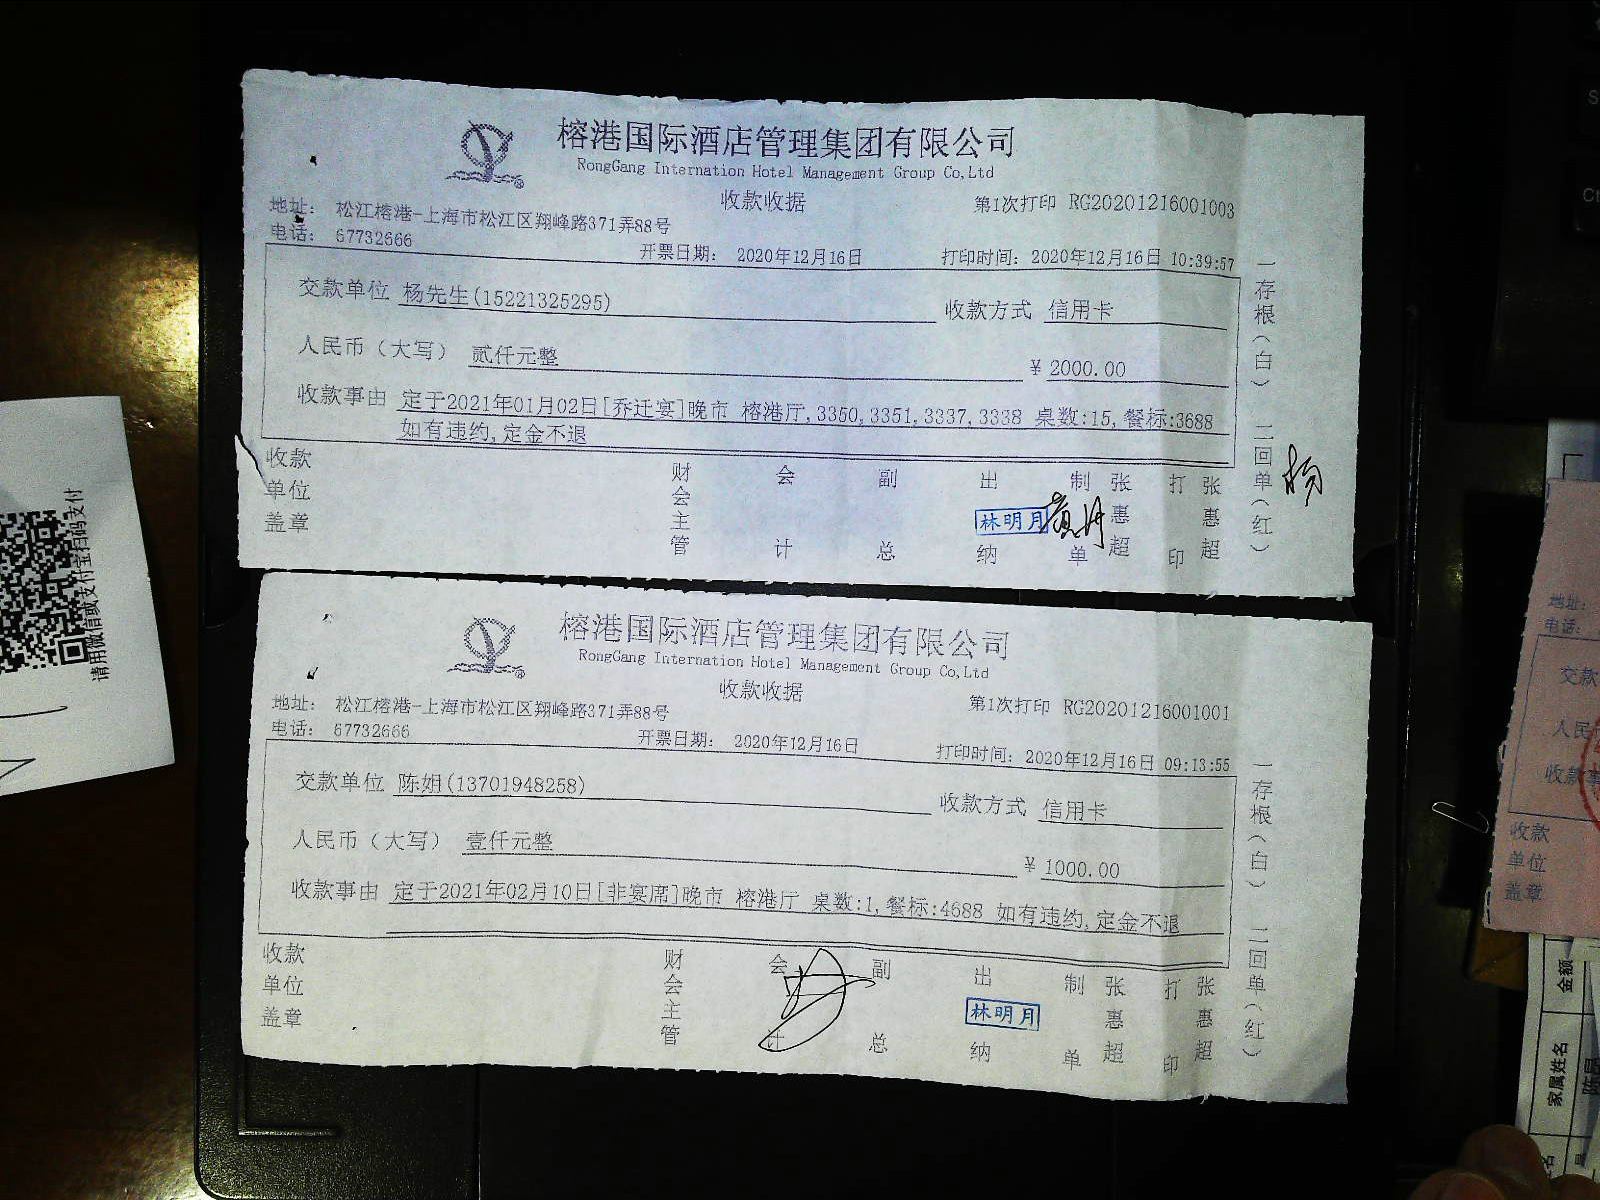 榕港国际酒店管理集团有限公司
RongGang Internation Hotel Management Group Co,Ltd
收款收据
第1次打印 RG20201216001003
地址： 松江榕港-上海市松江区翔峰路371弄88号
电话： 67732666
开票日期： 2020年12月16日
打印时间： 2020年12月16日 10:39:57
交款单位 杨先生(15221325295)
收款方式 信用卡
人民币（大写） 贰仟元整
¥ 2000.00
收款事由 定于2021年01月02日[乔迁宴]晚市 榕港厅,3350,3351,3337,3338 桌数:15,餐标:3688
如有违约,定金不退
收款单位盖章
财会主管
会计
副总
出纳
林明月
制单
张惠超
打印
张惠超
一存根（白） 二回单（红）
杨
榕港国际酒店管理集团有限公司
RongGang Internation Hotel Management Group Co,Ltd
收款收据
第1次打印 RG20201216001001
地址： 松江榕港-上海市松江区翔峰路371弄88号
电话： 67732666
开票日期： 2020年12月16日
打印时间： 2020年12月16日 09:13:55
交款单位 陈娟(13701948258)
收款方式 信用卡
人民币（大写） 壹仟元整
¥ 1000.00
收款事由 定于2021年02月10日[非宴席]晚市 榕港厅 桌数:1,餐标:4688 如有违约,定金不退
收款单位盖章
财会主管
会计
副总
出纳
林明月
制单
张惠超
打印
张惠超
一存根（白） 二回单（红）
请用微信或支付宝扫码支付
地址：
电话：
交款
人民
收款
收款
单位
盖章
金额
家属姓名